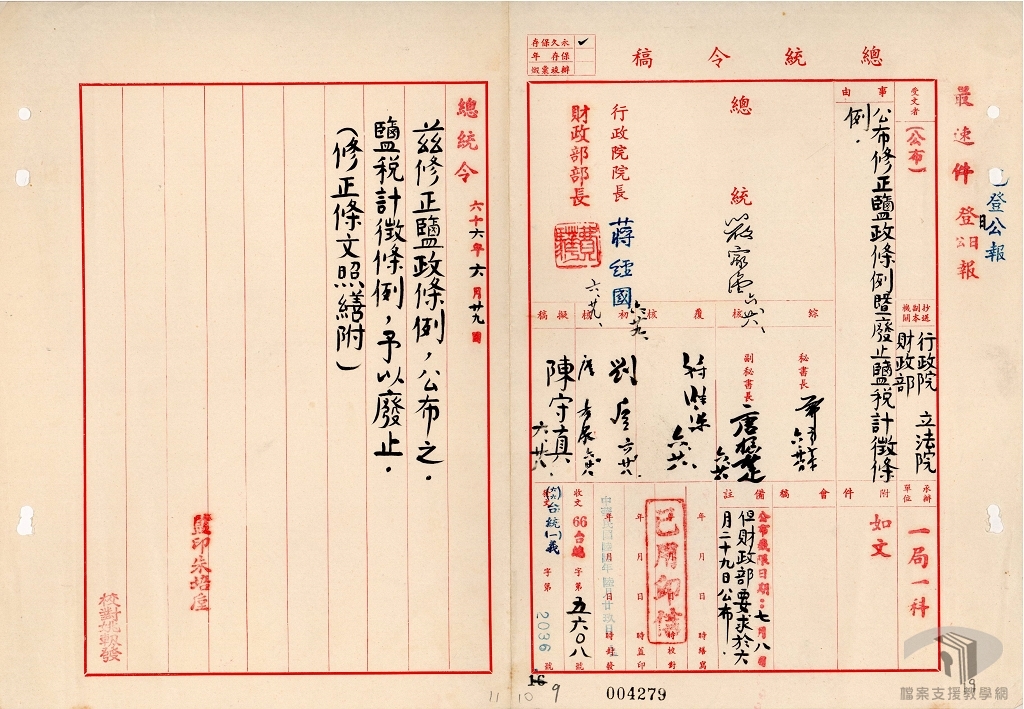 最速件 登公報
登公報
總統令稿
永久保存
保存年
辦竣彙繳
受文者
(公布)
抄送副本機關
行政院 立法院
財政部
承辦單位
一局一科
事由
公布修正鹽政條例暨廢止鹽稅計徵條
例.
附件
如文
會稿
備註
公布截限日期:七月八日
但財政部要求於六
月二十九日公布.
總統
行政院院長 蔣經國
財政部部長
綜核
覆核
初核
擬稿
秘書長
副秘書長
陳守真
六.廿八.
年月日時繕寫
年月日時校對
年月日時蓋印
年月日時封發
已用印信
收文66台總字第五六〇八號
發文(六六)台統(一)義字第2036號
004279
16
11 10 9
總統令
六十六年六月廿九日
茲修正鹽政條例,公布之.
鹽稅計徵條例,予以廢止.
(修正條文照繕附)
監印朱培垕
校對
檔案支援教學網